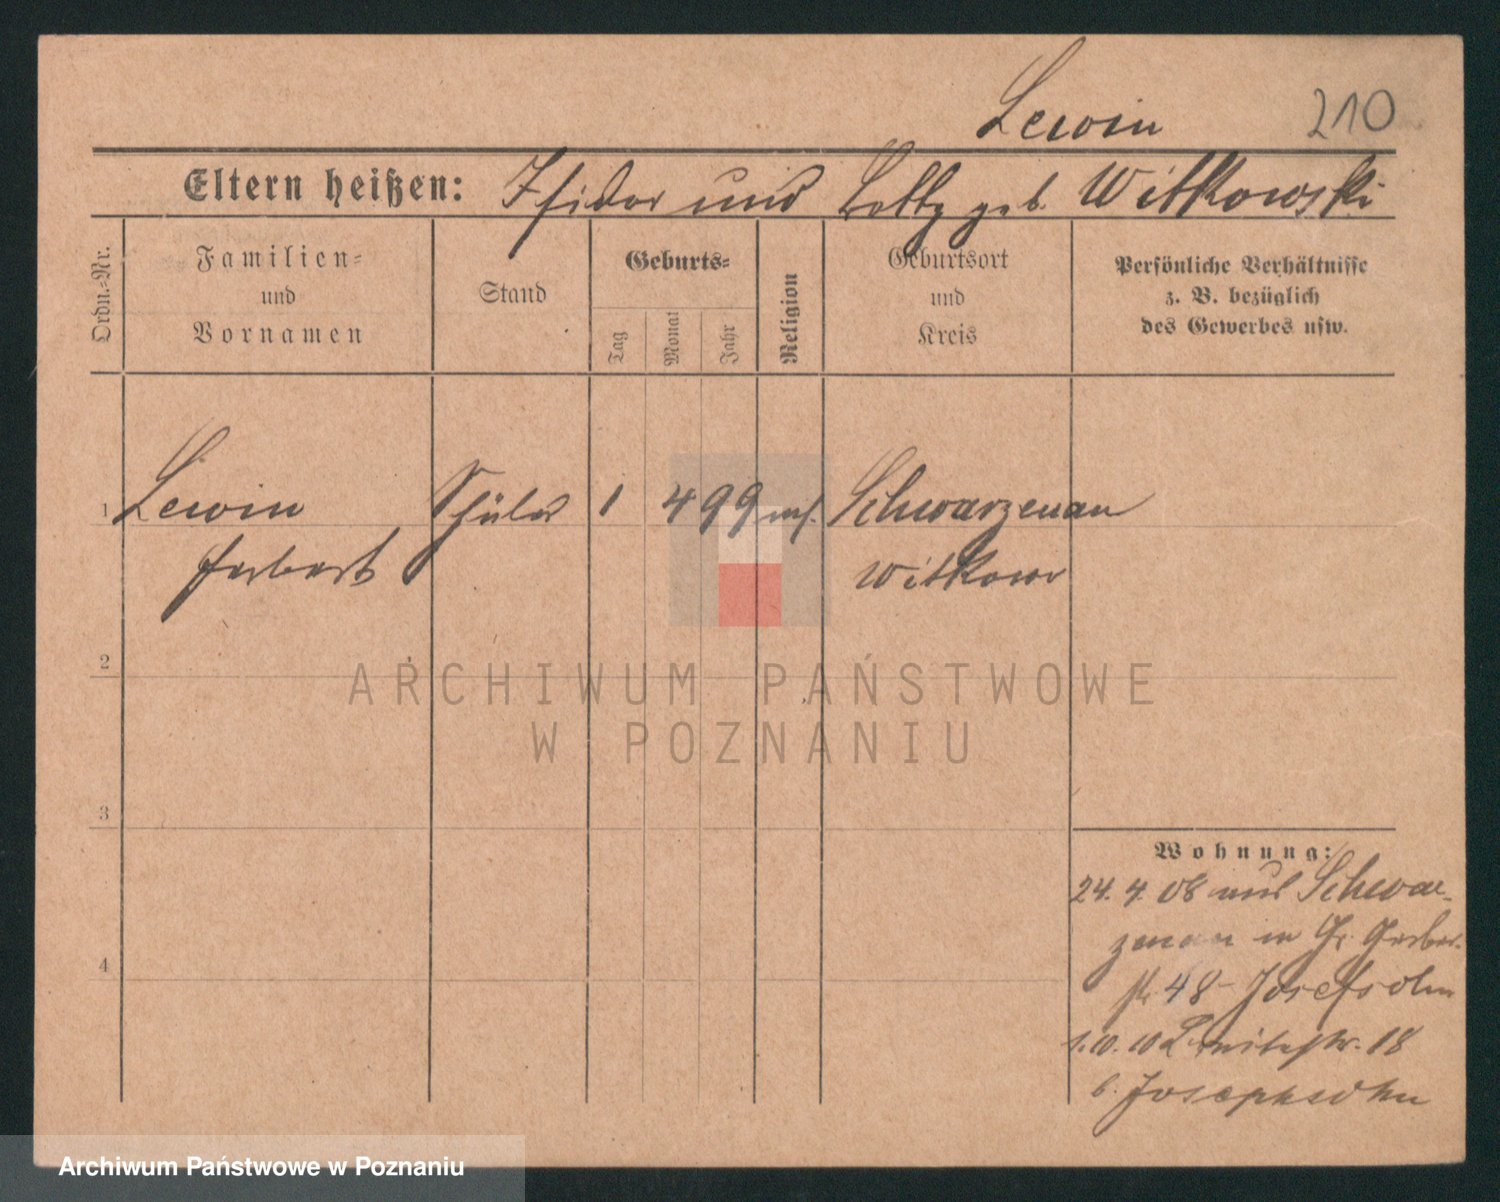 Lewin 210
Eltern heißen: Isidor und Lotty geb. Witkowski
Ordn.=Nr.
Familien=
und
Vornamen
Stand
Geburts=
Tag
Monat
Jahr
Religion
Geburtsort
und
Kreis
Persönliche Verhältnisse
z. B. bezüglich
des Gewerbes usw.
1 Lewin Schüler 1 4 99 mos. Schwarzenau
Herbert Witkowo
2
3
4
Wohnung:
24. 4. 08 aus Schwar-
zenau in Gr. Gerber-
str. 48 Josefsohn
1.10.10 str. 18
b. Josephsohn
ARCHIWUM PAŃSTWOWE
W POZNANIU
Archiwum Państwowe w Poznaniu